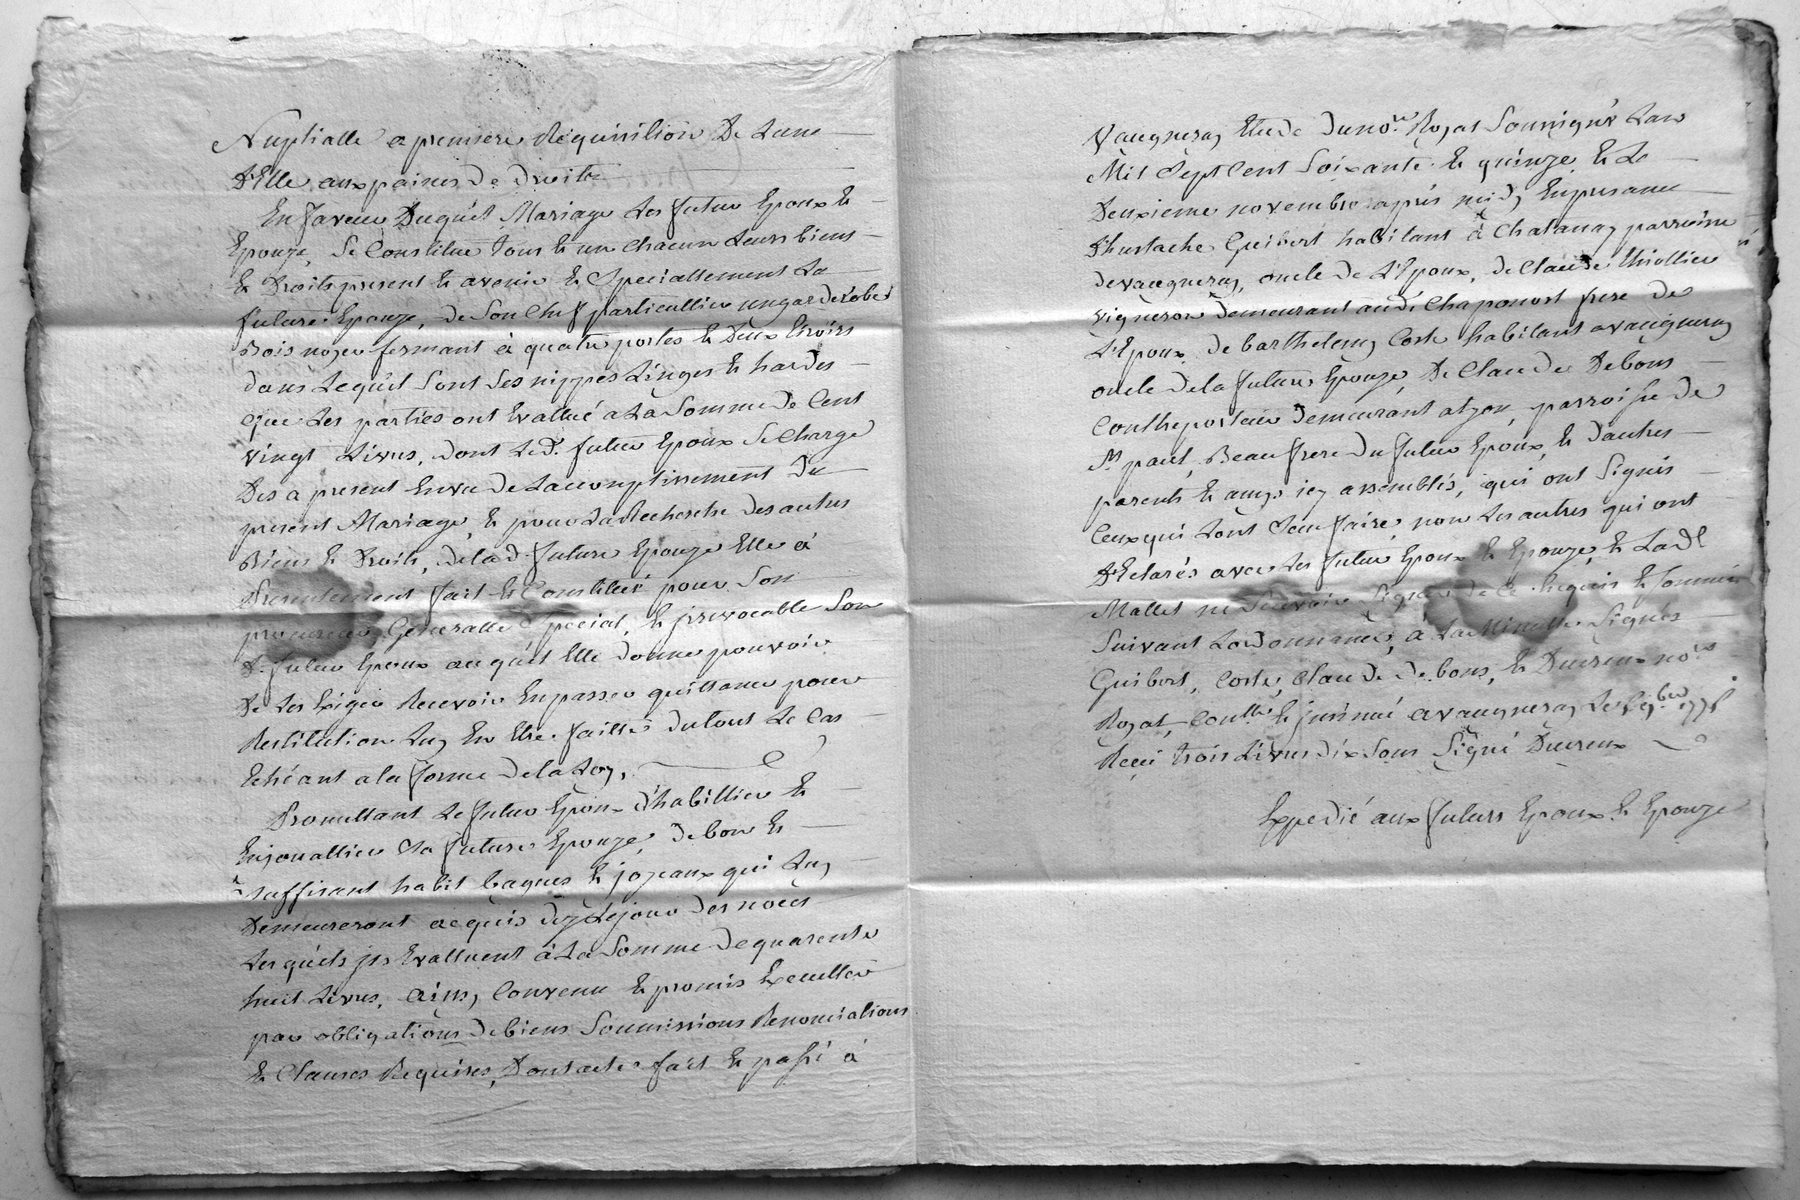 Nuptialle a premiere Requisition De Lune
D'Elle aux paines De droits
En faveur Duquel Mariage Les futur Epoux Et
Epouze, Se Constitue tous Et un Chacun Leurs biens
Et Droits present Et avenir Et Speciallement La
future Epouze, De Son Chef particullier un garderobe
Bois noyer fermant à quatre portes Et Deux tiroirs
dans Lequel Sont Ses nippes Linges Et hardes
Que Les parties ont Evallué a La Somme De Cent
vingt Livres, dont Le d. futur Epoux Se Charge
Des a present En vu De Lacomplissement Du
present Mariage, Et pour La Recherche Des autres
Biens Et Droits, De lad. future Epouze Elle à
Presentement fait Et Constitué pour Son
procureur Generalle Special, Et jrrevocable Son
D. futur Epoux auquel Elle Donne pouvoir
De Les Exiger Recevoir En passer quittance pour
Restitution Luy En Etre faitte Du tout Le Cas
Echéant a la forme De la Loy,
Promettant Le futur Epoux d'habillier Et
Enjouallier Sa future Epouze, De bon Et
suffisant habit bagues Et joyeaux qui Luy
Demeureront acquis dez Le jour Des noces
Les quels jls Evalluent à La Somme De quarente
huit Livres, Ainsy Convenu Et promis Executter
par obligations De biens Soumissions Renonciations
Et Clauses Requises, Dont acte fait Et passé à
Vaugneray Etude Du no.re Royal Soussigné Lan
Mil Sept Cent Soixante Et quinze Et Le
Deuxieme novembre après midy En presance
D'hustache Guibert habitant à Chatanay parroisse
de vaugneray, oncle de L'Epoux, de Claude thiollier
vigneron Demeurant aud. Chaponost frere De
L'Epoux De barthelemy Coste habitant a vaugneray
oncle De la future Epouze, De Claude Debons
Conthreporteur Demeurant a Lyon, parroisse De
St. paul, Beaufrere Du futur Epoux, Et D'autres
parents Et amys jcy assemblés, qui ont Signés
Ceux qui L'ont Sceu faire, non Les autres qui ont
D'Eclarés avec Les futur Epoux Et Epouze, Et Lad.
Mallet ne Scavoir Signer De Ce Enquis Et Sommés
Suivant Lordonnance, à La Minutte Signés
Guibert, Coste, Claude Debons, Et Ducreux no.re
Royal, Con.llé Et jnsinué a vaugneray Le 9.bre 1775
Reçu trois Livres Dix Sous Signé Ducreux
Expedié aux futurs Epoux Et Epouze